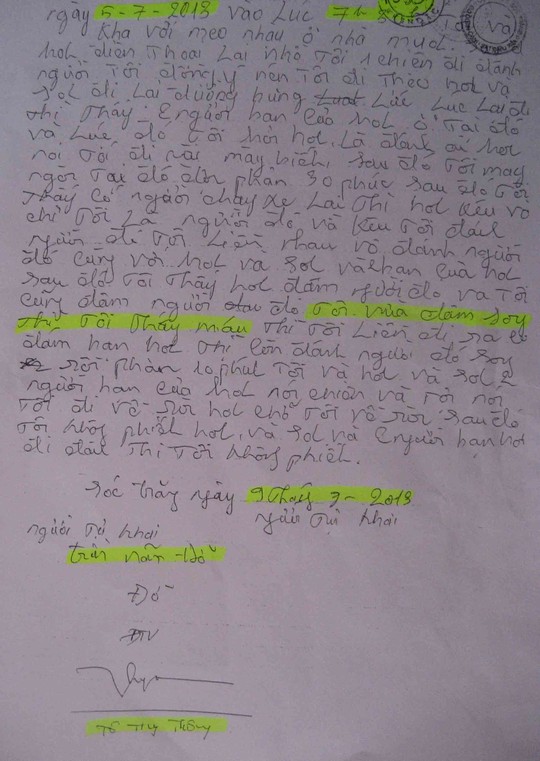 ngày 5-7-2013 vào Lúc 7h và
Kha với mẹo nhau ở nhà mụch
hol diên Thoai Lai nhờ Tôi 1 chiên đi đánh
người Tôi đồng ý nên Tôi đi Theo hol và
sol đi Lai đường bưng Lúc Luc Lai đi
Thì Thấy 2 người ban của hol ở Tai đó
và Lúc đó Tôi hỏi hol Là đánh ai hol
nói Tới đi rài mày biêt, sau đó Tôi
ngơi Tai đó đơn phân 30 phúc sau đó Tôi
Thấy có người chay xe Lai Thì hol kêu vô
chỉ Tôi Là người đó và kêu Tôi đánh
người đó Tôi Liền nhau vô đánh người
đó cung với hol va sol và ban của hol
sau đó Tôi Thấy hol đâm người đo, va Tôi
cũng đâm người đó Tôi vừa đâm soy
Thì Tôi Thấy máu Thì Tôi Liên đi ra
đâm han hol Thì Còn đánh người đó soy
rồi phân 10 phút Tôi và hol và sol 2
người ban của hol nói chiên và Tôi nói
Tôi đi về rồi hol chở Tôi về rồi sau đó
Tôi không phiết hol, và sol và 2 người ban hol
đi đâu Thì Tôi không phiêt.
sóc Trăng ngày 9 Tháng 7-2013
người Tự khai người Tự khai
Trần văn Đở
Đở
ĐTV